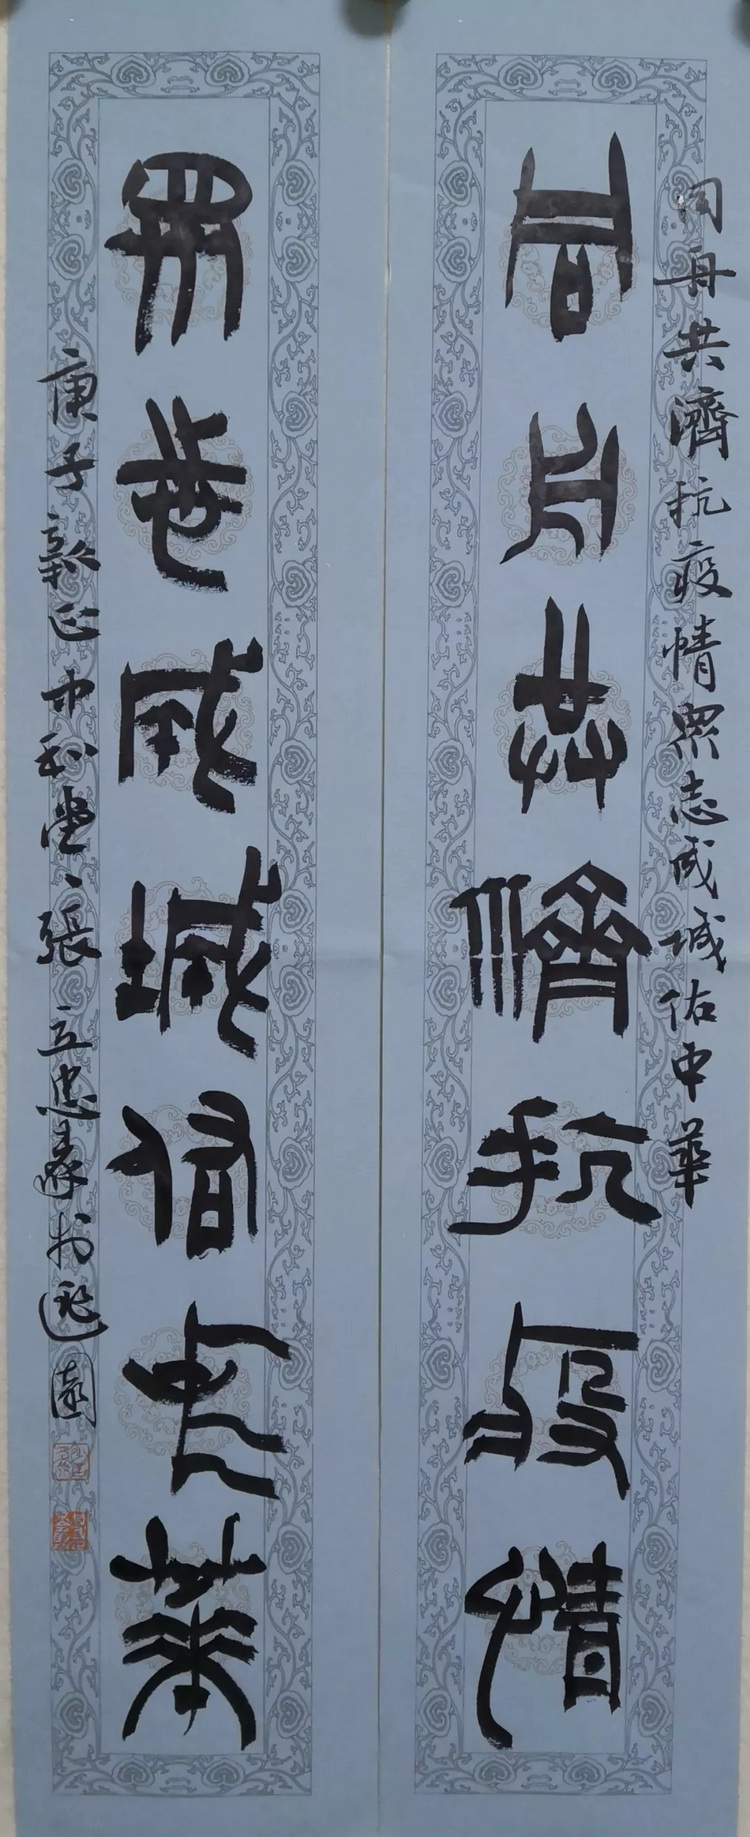 同舟共濟抗疫情
同舟共濟抗疫情眾志成城佑中華
眾志成城佑中華
庚子新正中和堂張立忠篆於逸園